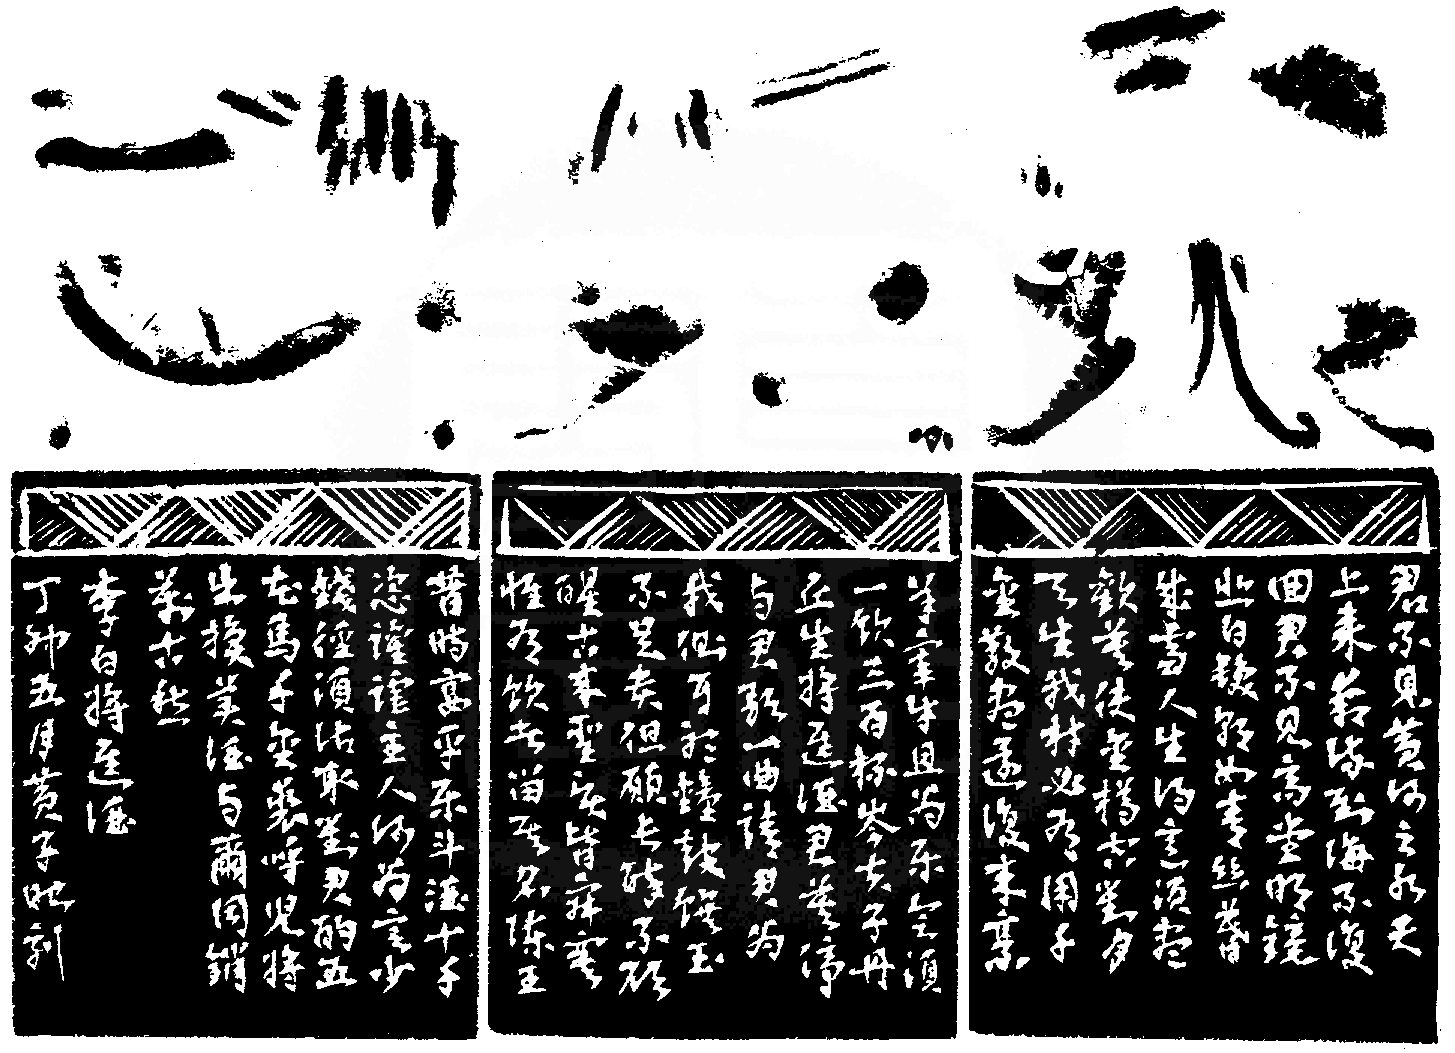 君不見黃河之水天
上來奔流到海不復
回君不見高堂明鏡
悲白髮朝如青絲暮
成雪人生得意須盡
歡莫使金樽空對月
天生我材必有用千
金散盡還復來烹
羊宰牛且為樂會須
一飲三百杯岑夫子丹
丘生將進酒君莫停
与君歌一曲請君為
我側耳聽鐘鼓饌玉
不足貴但願長醉不願
醒古來聖賢皆寂寞
惟有飲者留其名陳王
昔時宴平樂斗酒十千
恣讙謔主人何為言少
錢徑須沽取對君酌五
花馬千金裘呼兒將
出換美酒与爾同銷
萬古愁
李白將進酒
丁卯五月黃子刻